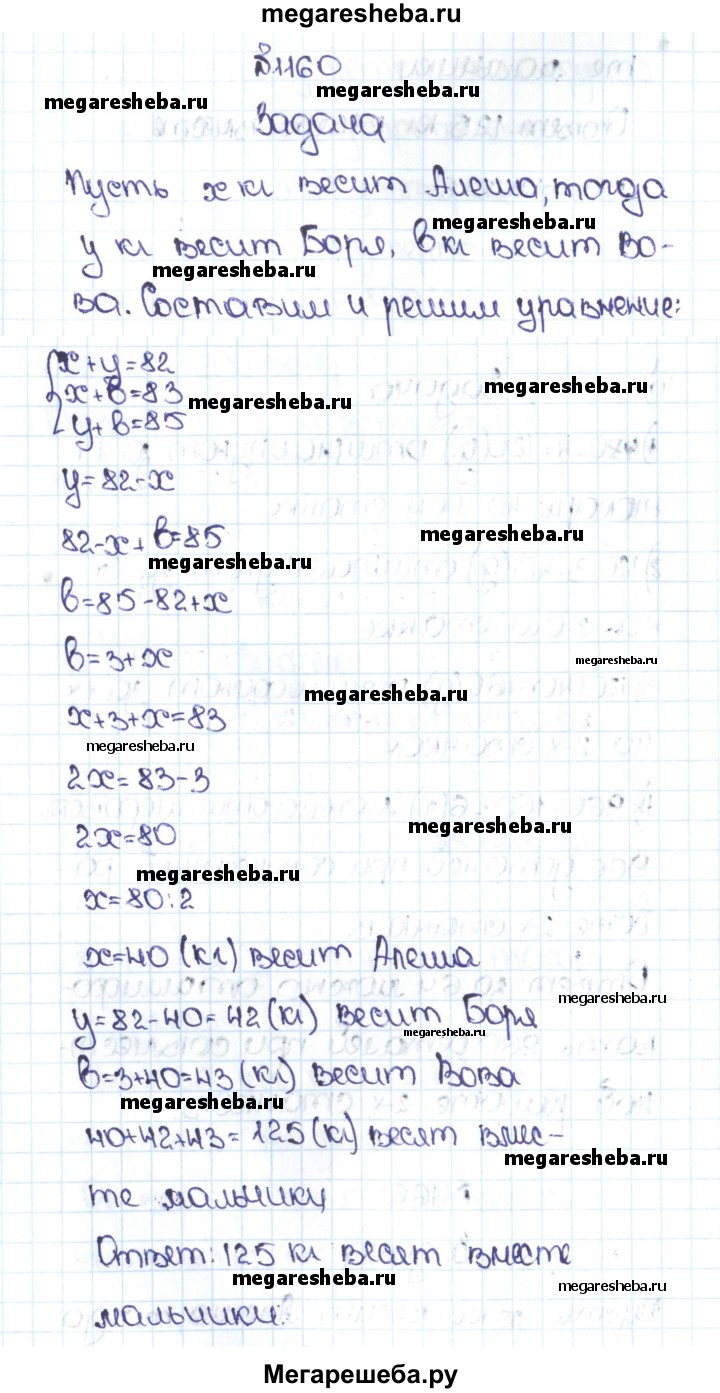 megaresheba.ru
№1160
megaresheba.ru
megaresheba.ru
Задача
Пусть x кг весит Алеша, тогда
megaresheba.ru
y кг весит Боря, в кг весит Во-
megaresheba.ru
ва. Составим и решим уравнение:
x+y=82
x+в=83
megaresheba.ru
megaresheba.ru
y+в=85
y=82-x
82-x+в=85
megaresheba.ru
megaresheba.ru
в=85-82+x
в=3+x
megaresheba.ru
megaresheba.ru
x+3+x=83
megaresheba.ru
2x=83-3
2x=80
megaresheba.ru
megaresheba.ru
x=80:2
x=40 (кг) весит Алеша
megaresheba.ru
y=82-40=42 (кг) весит Боря
megaresheba.ru
в=3+40=43 (кг) весит Вова
megaresheba.ru
40+42+43=125 (кг) весят вмес-
megaresheba.ru
те мальчики
Ответ: 125 кг весят вместе
megaresheba.ru
megaresheba.ru
мальчики.
Мегарешеба.ру